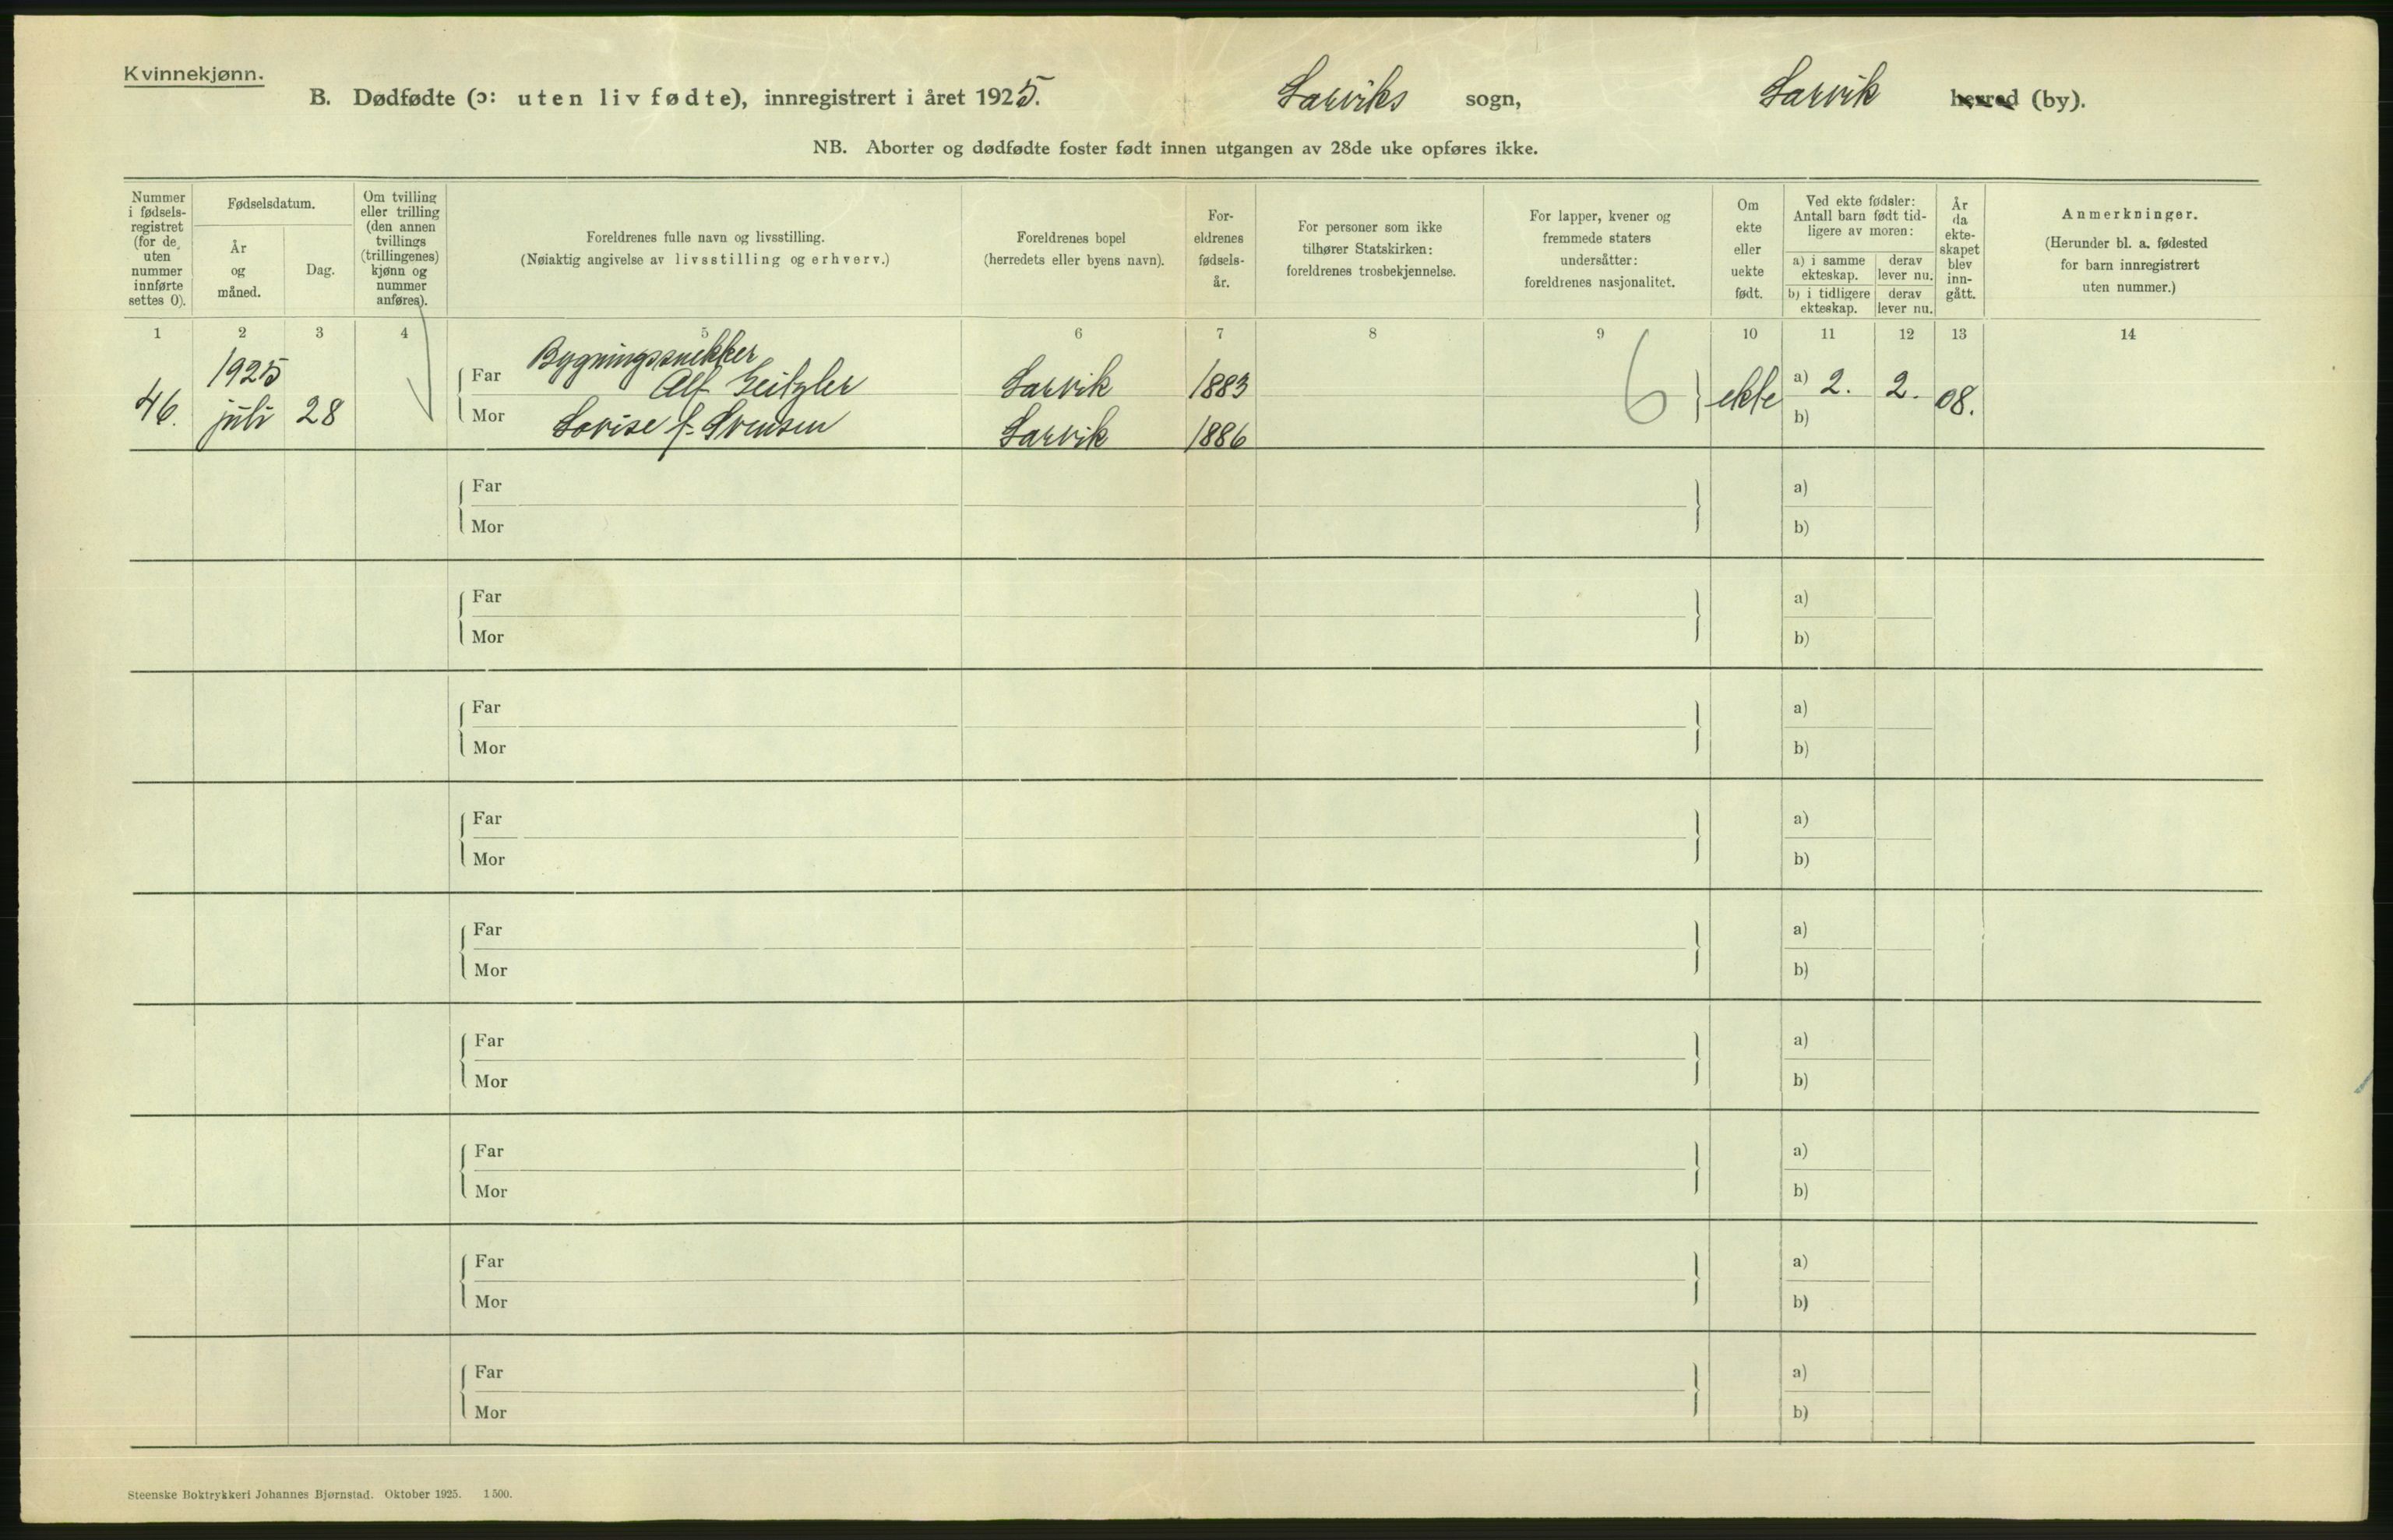 Kvinnekjønn.
B. Dødfødte (ɔ: uten liv fødte), innregistrert i året 1925. Larviks sogn, Larvik herred (by).
NB. Aborter og dødfødte foster født innen utgangen av 28de uke opføres ikke.
Nummer i fødselsregistret (for de uten nummer innførte settes 0).
Fødselsdatum.
År og måned.
Dag.
Om tvilling eller trilling (den annen tvillings (trillingenes) kjønn og nummer anføres).
Foreldrenes fulle navn og livsstilling.
(Nøiaktig angivelse av livsstilling og erhverv.)
Foreldrenes bopel
(herredets eller byens navn).
For-
eldrenes
fødsels-
år.
For personer som ikke
tilhører Statskirken:
foreldrenes trosbekjennelse.
For lapper, kvener og
fremmede staters
undersåtter:
foreldrenes nasjonalitet.
Om
ekte
eller
uekte
født.
Ved ekte fødsler:
Antall barn født tid-
ligere av moren:
a) i samme ekteskap.
derav lever nu.
b) i tidligere ekteskap.
derav lever nu.
År
da
ekte-
skapet
blev
inn-
gått.
Anmerkninger.
(Herunder bl. a. fødested
for barn innregistrert
uten nummer.)
1 2 3 4 5 6 7 8 9 10 11 12 13 14
Bygningssnekker
46. 1925 juli 28
Far Alf Larvik 1883 6 ekte a) 2. 2. 08.
Mor Lovise f. Svensen Larvik 1886 b)
Far a)
Mor b)
Far a)
Mor b)
Far a)
Mor b)
Far a)
Mor b)
Far a)
Mor b)
Far a)
Mor b)
Far a)
Mor b)
Far a)
Mor b)
Far a)
Mor b)
Steenske Boktrykkeri Johannes Bjørnstad. Oktober 1925. 1500.